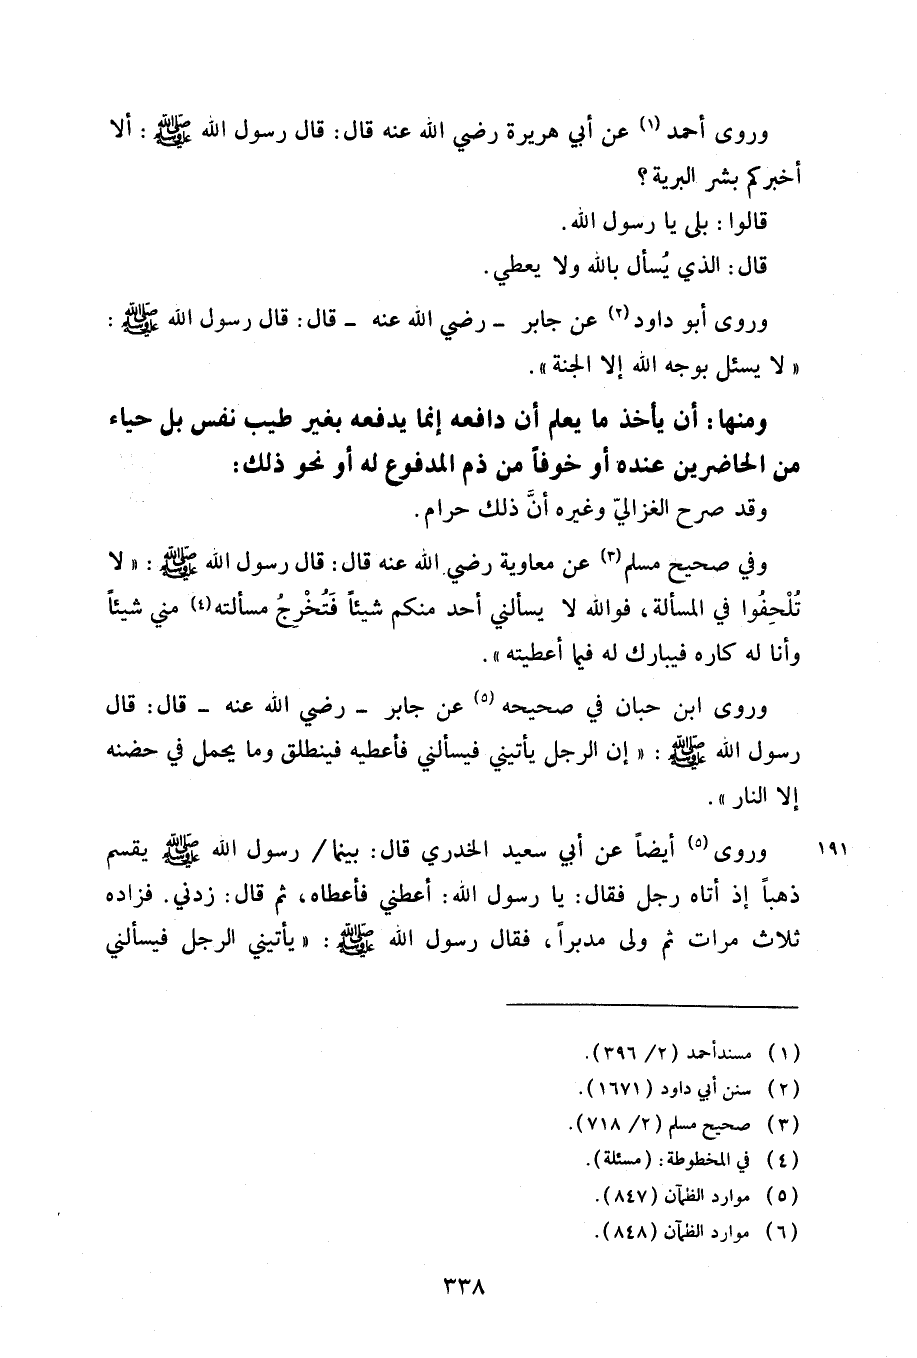 وروى أحمد (١) عن أبي هريرة رضي الله عنه قال: قال رسول الله ﷺ : ألا
أخبركم بشر البرية؟
قالوا: بلى يا رسول الله.
قال: الذي يُسأل بالله ولا يعطي.
وروى أبو داود (٢) عن جابر - رضي الله عنه - قال: قال رسول الله ﷺ :
« لا يسئل بوجه الله إلا الجنة ».
ومنها: أن يأخذ ما يعلم أن دافعه إنما يدفعه بغير طيب نفس بل حياء
من الحاضرين عنده أو خوفاً من ذم المدفوع له أو نحو ذلك:
وقد صرح الغزاليّ وغيره أنَّ ذلك حرام.
وفي صحيح مسلم (٣) عن معاوية رضي الله عنه قال: قال رسول الله ﷺ : « لا
تُلْحِفُوا في المسألة، فوالله لا يسألني أحد منكم شيئاً فَتُخْرِجُ مسألته (٤) مني شيئاً
وأنا له كاره فيبارك له فيما أعطيته ».
وروى ابن حبان في صحيحه (٥) عن جابر - رضي الله عنه - قال: قال
رسول الله ﷺ : « إن الرجل يأتيني فيسألني فأعطيه فينطلق وما يحمل في حضنه
إلا النار ».
وروى (٥) أيضاً عن أبي سعيد الخدري قال: بينما/ رسول الله ﷺ يقسم ١٩١
ذهباً إذ أتاه رجل فقال: يا رسول الله: أعطني فأعطاه، ثم قال: زدني. فزاده
ثلاث مرات ثم ولى مدبراً، فقال رسول الله ﷺ : « يأتيني الرجل فيسألني
(١) مسندأحمد (٢/ ٣٩٦).
(٢) سنن أبي داود (١٦٧١).
(٣) صحيح مسلم (٢/ ٧١٨).
(٤) في المخطوطة: (مسئلة).
(٥) موارد الظمآن (٨٤٧).
(٦) موارد الظمآن (٨٤٨).
٣٣٨